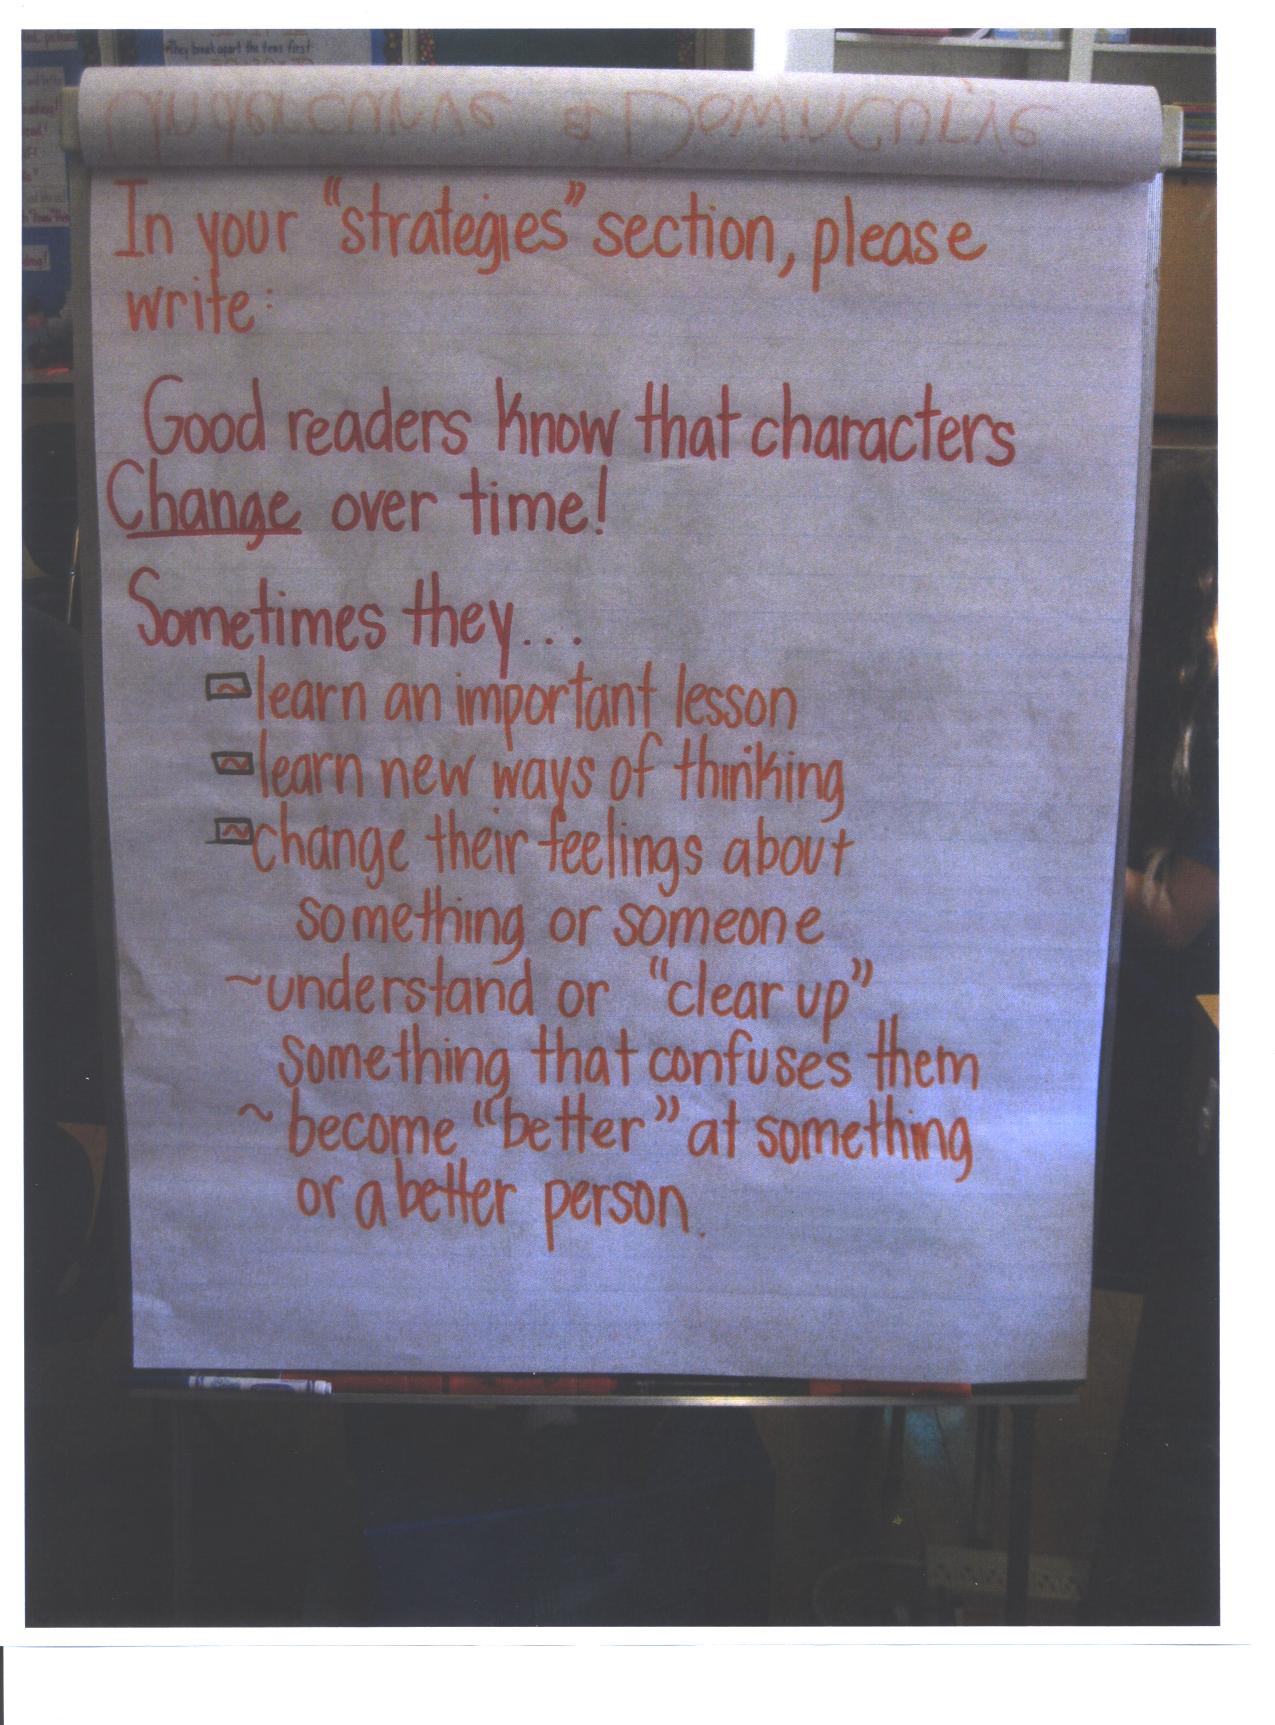 They break apart the tens first
In your "strategies" section, please
write:
Good readers know that characters
Change over time!
Sometimes they...
~learn an important lesson
~learn new ways of thinking
~change their feelings about
something or someone
~understand or "clear up"
something that confuses them
~ become "better" at something
or a better person.